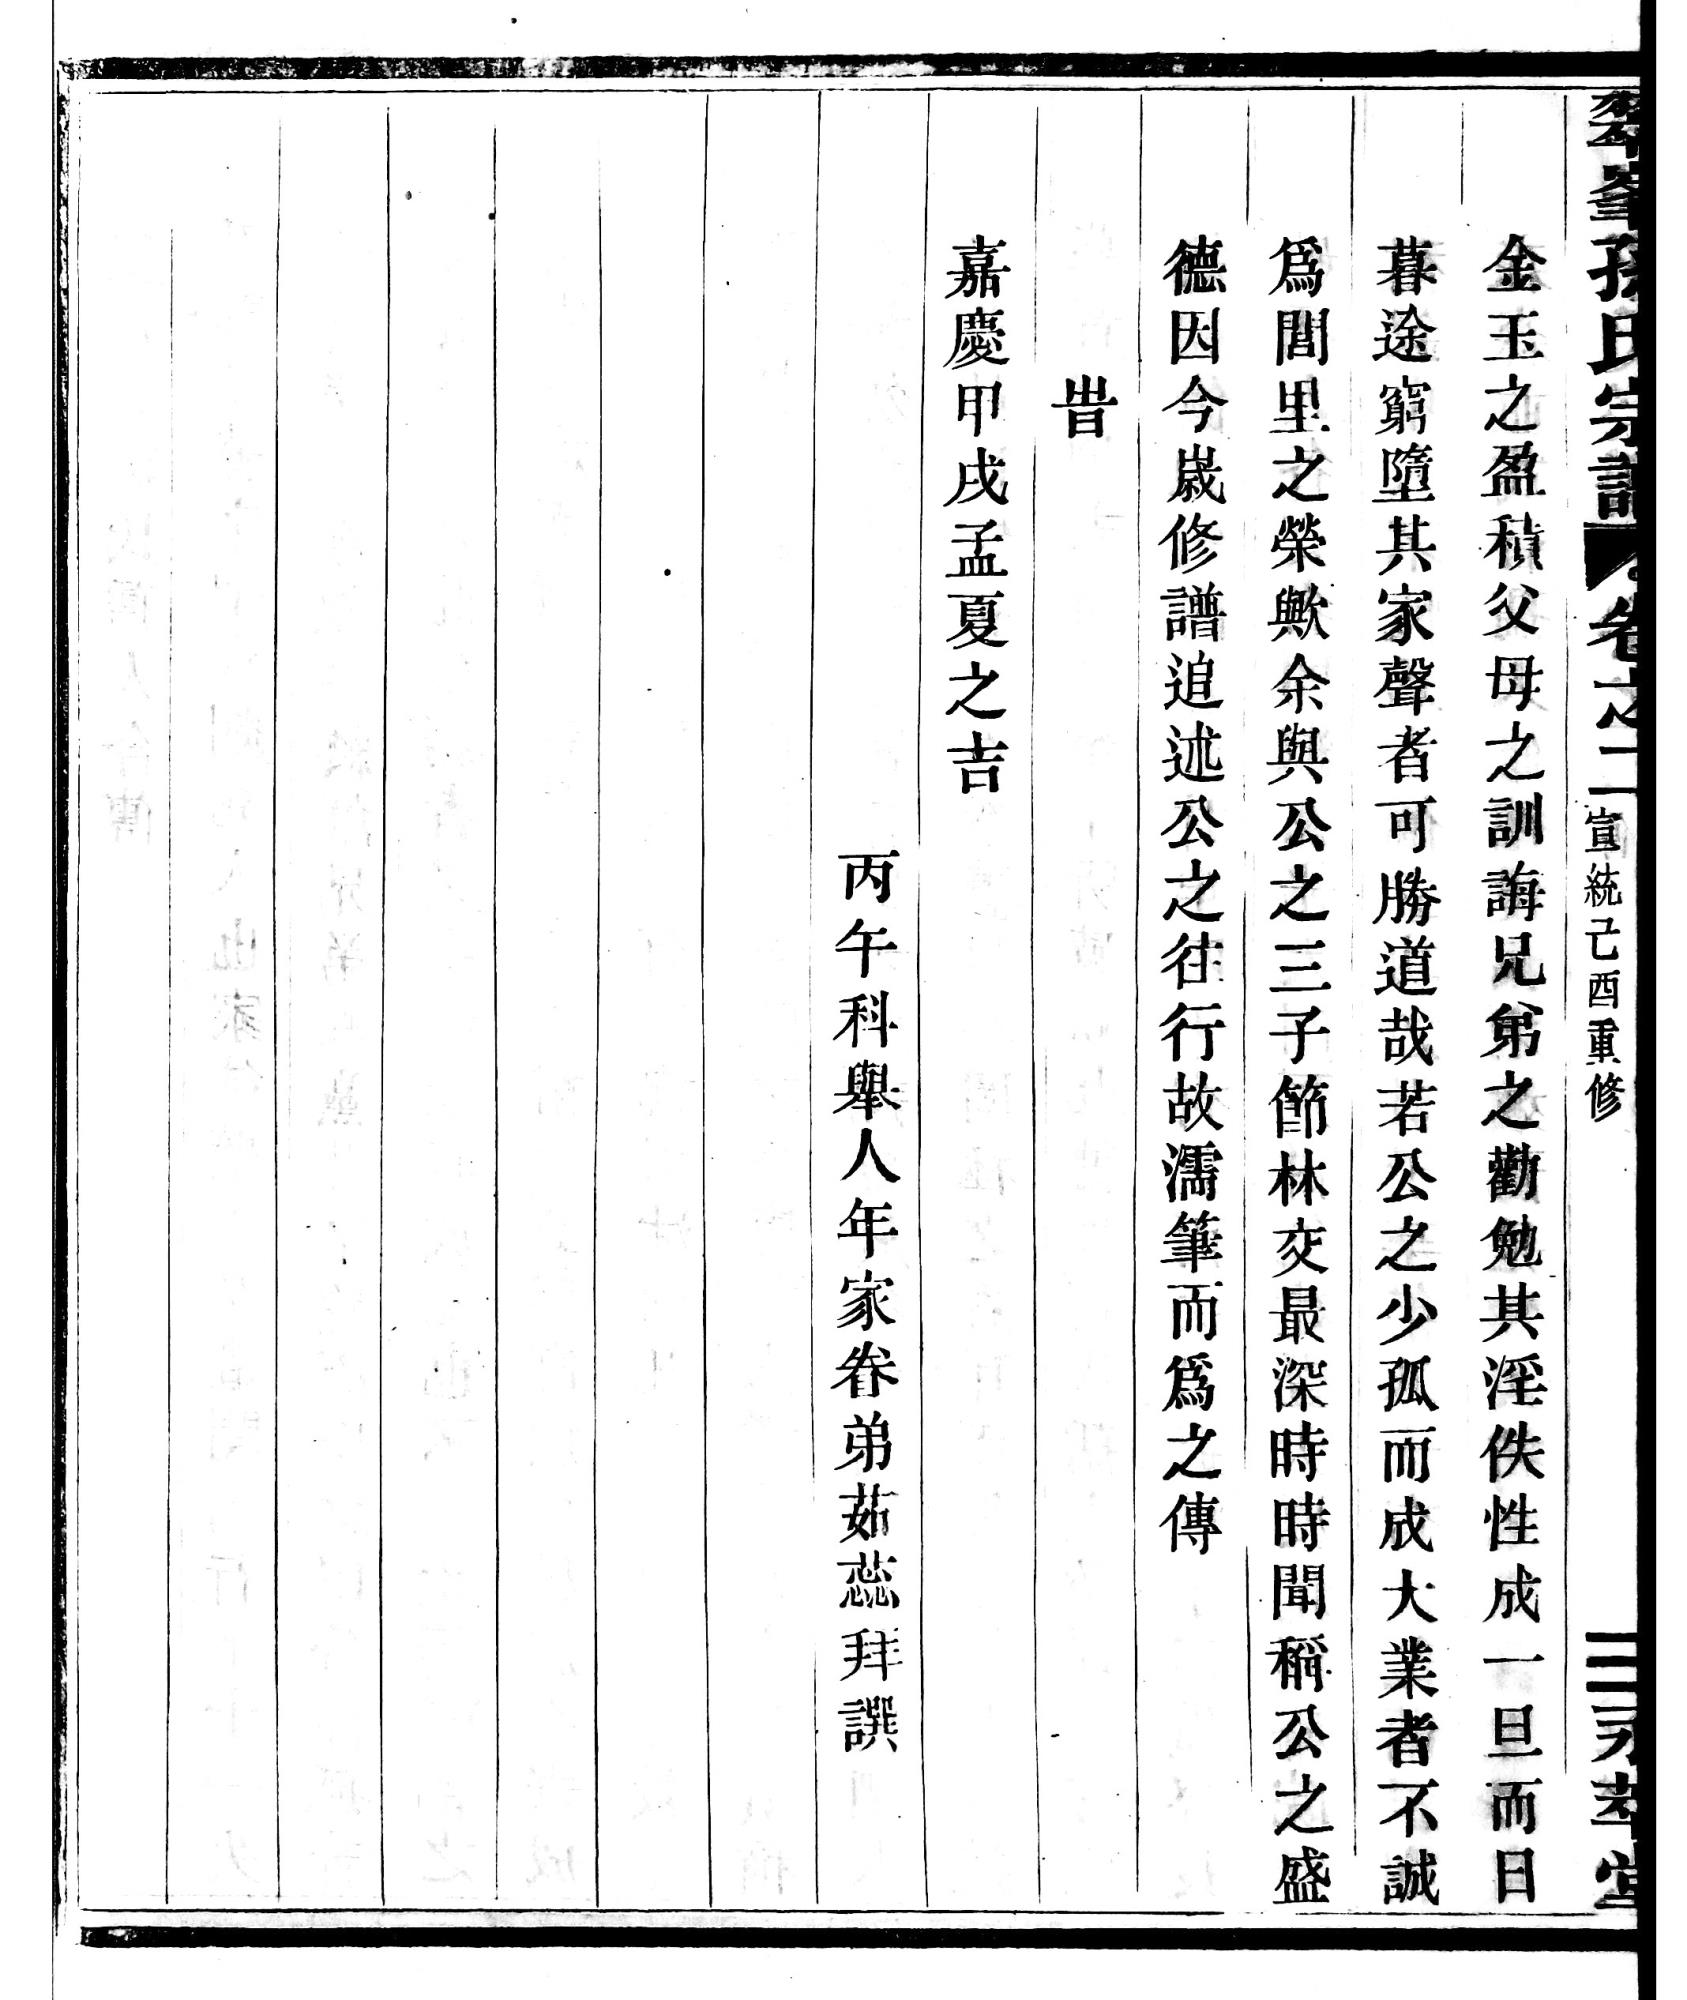 孫氏宗譜 卷之二 宣統己酉重修
金玉之盈積父母之訓誨兄弟之勸勉其淫佚性成一旦而日
暮途窮墮其家聲者可勝道哉若公之少孤而成大業者不誠
爲閭里之榮歟余與公之三子節林交最深時時聞稱公之盛
德因今嵗修譜追述公之徃行故濡筆而爲之傳
旹
嘉慶甲戌孟夏之吉
丙午科舉人年家眷弟茹蕊拜譔